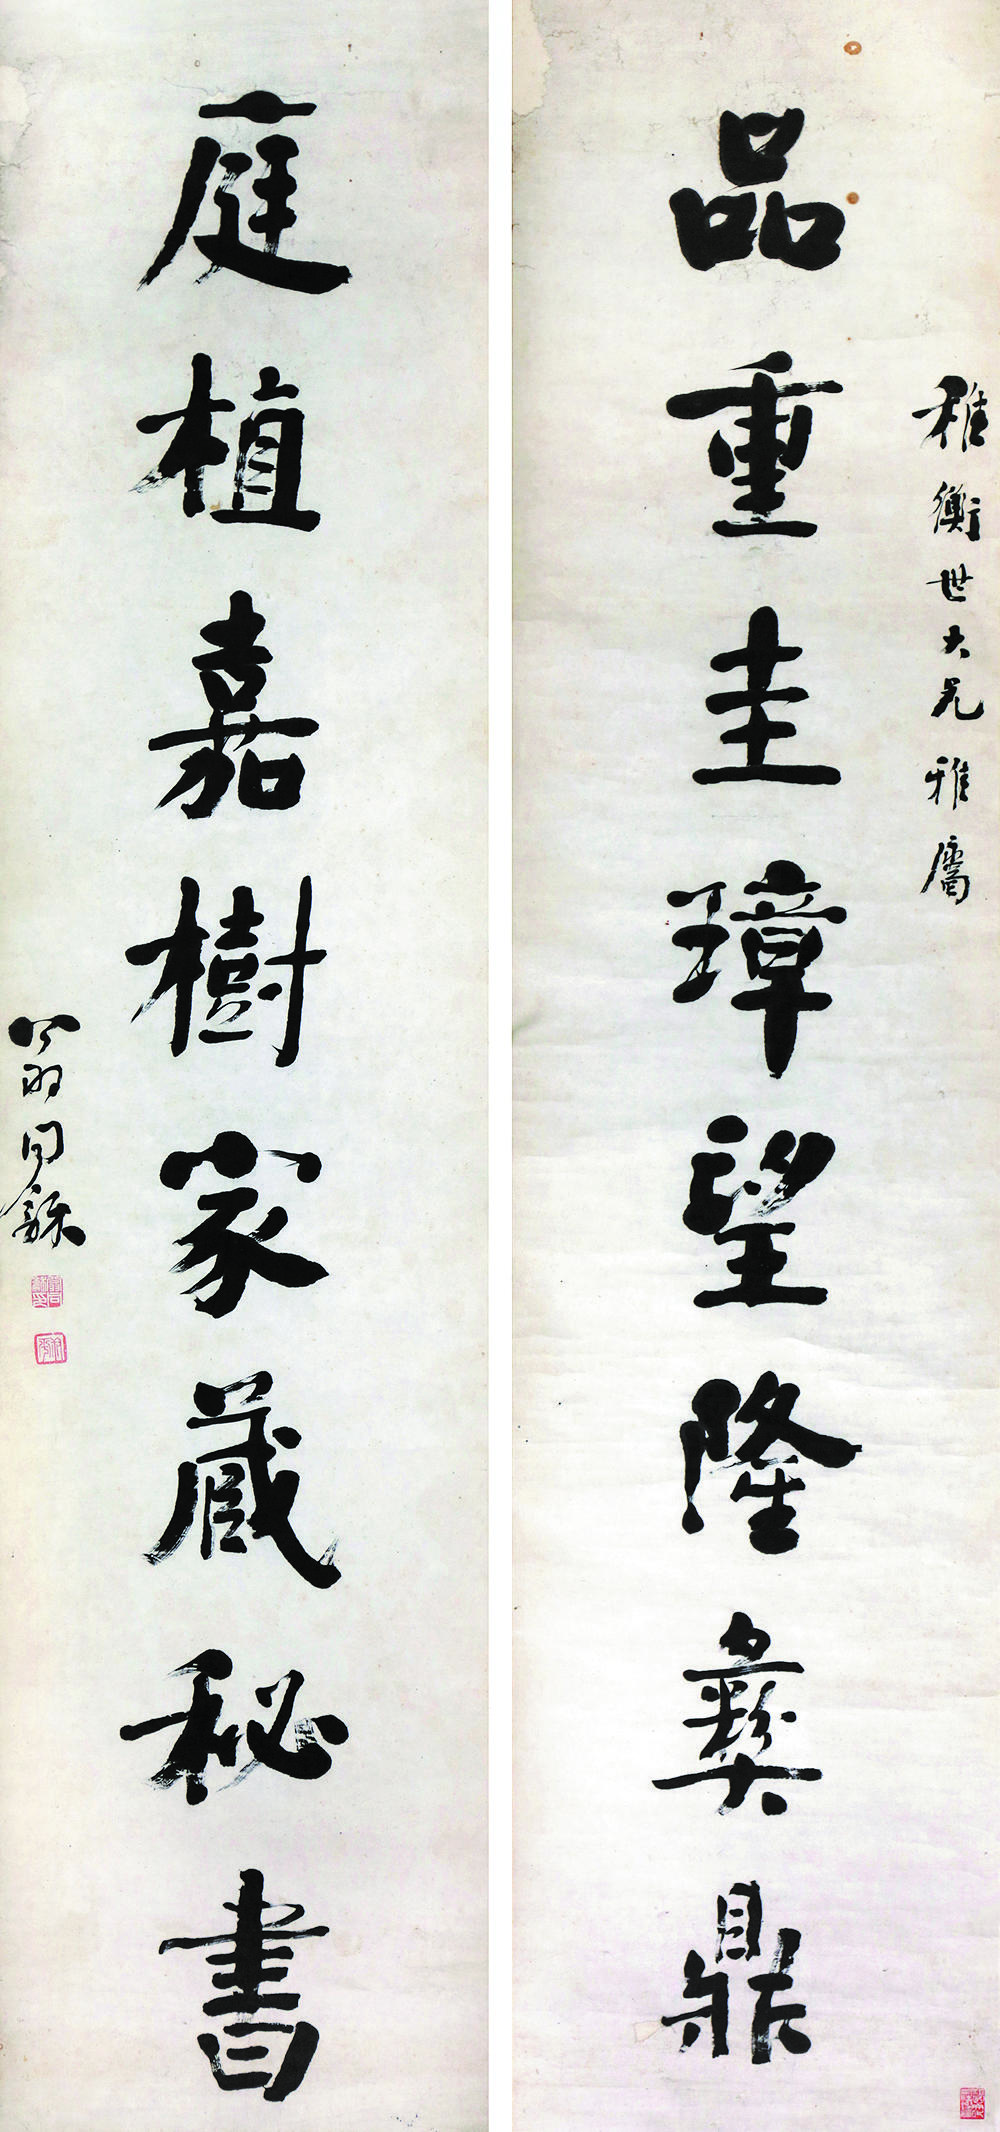 稚衡世大兄雅屬
品重圭璋望隆彝鼎
庭植嘉樹家藏秘書
翁同龢